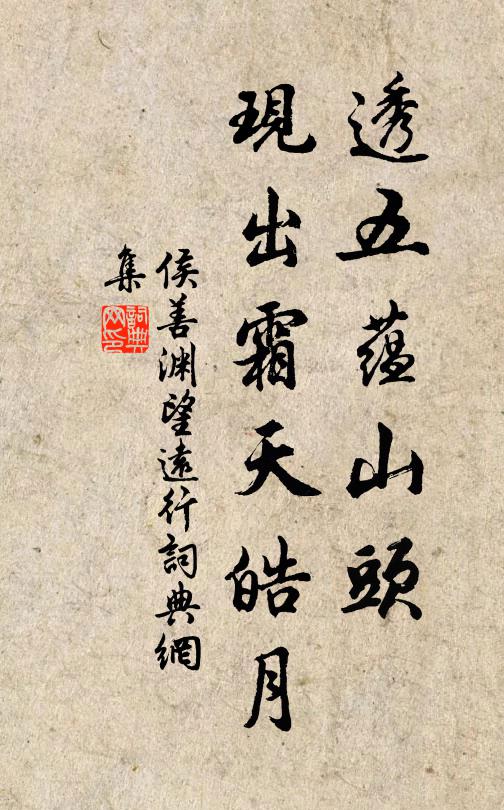 透五蘊山頭
現出霜天皓月
侯善渊望遠行詞典網
集
詞典
网印